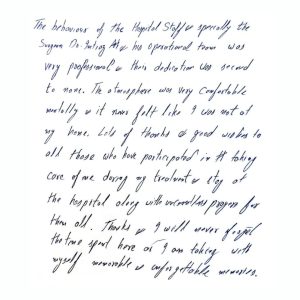 The behaviour of the Hospital Staff & specially the
Surgeon Dr. & his operational team was
very professional & their dedication was second
to none. The atmosphere was very comfortable
mentally & it never felt like I was not at
my home. Lots of thanks & good wishes to
all those who have participated in taking
care of me during my treatment & stay at
the hospital along with prayers for
them all. Thanks & I will never forget
the time spent here as I am taking with
myself memorable & unforgettable memories.